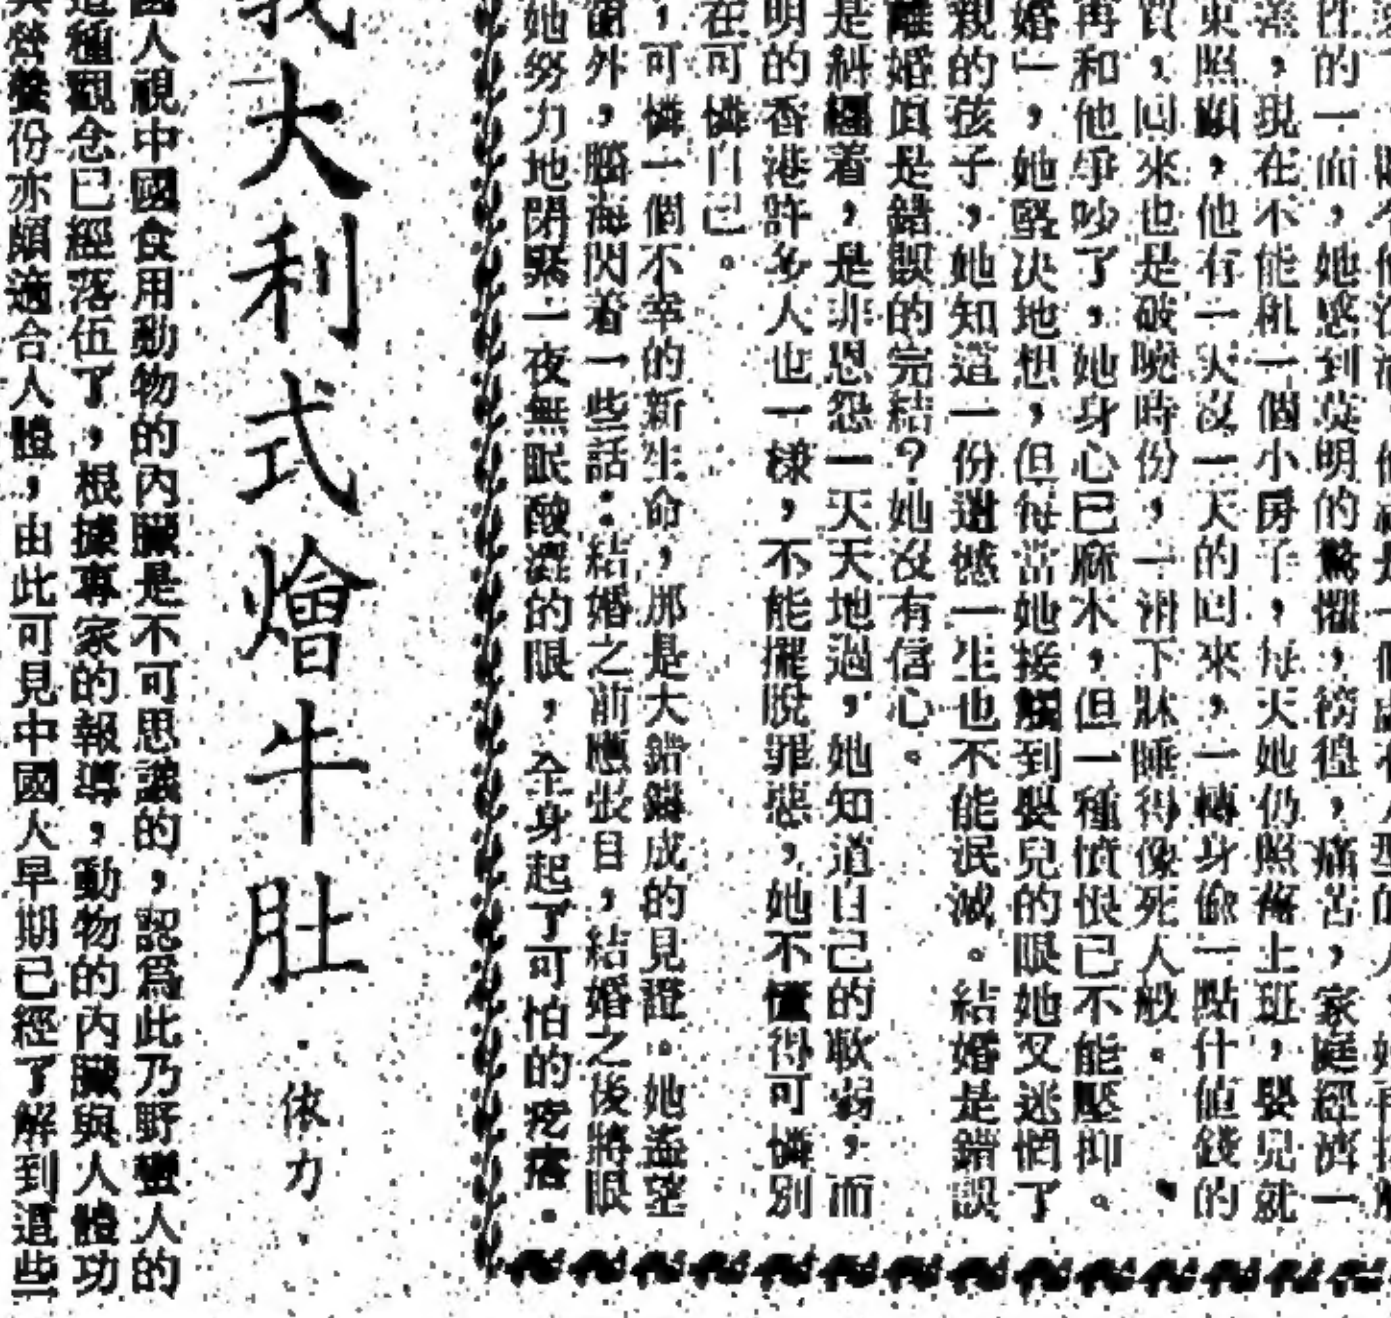 性的一面，她感到莫明的驚懼，徬徨，痛苦，家庭經濟一
，現在不能租一個小房子，每天她仍照舊上班，嬰兒就
東照顧，他有一天沒一天的回來，一轉身偷一點什値錢的
質，回來也是破曉時份，一褙下牀睡得像死人般。
再和他爭吵了，她身心已麻木，但一種憤恨已不能壓抑。
婚」，她堅决地想，但每當她接觸到嬰兒的眼她又迷惘了
親的孩子，她知道一份遺憾一生也不能泯滅。結婚是錯誤
離婚眞是錯誤的完結？她沒有信心。
是糾纏着，是非恩怨一天天地過，她知道自己的軟弱，而
明的香港許多人也一樣，不能擺脫罪惡，她不懂得可憐別
在可憐自己。
，可憐一個不幸的新生命，那是大錯鑄成的見證。她遙望
窗外，腦海閃着一些話：結婚之前應張目，結婚之後將眼
她努力地閉緊一夜無眠酸澀的眼，全身起了可怕的疙瘩。
大利式燴牛肚·依力·
國人視中國食用動物的內臟是不可思議的，認爲此乃野蠻人的
這種觀念已經落伍了，根據專家的報導，動物的內臟與人體功
營養份亦頗適合人體，由此可見中國人早期已經了解到這些